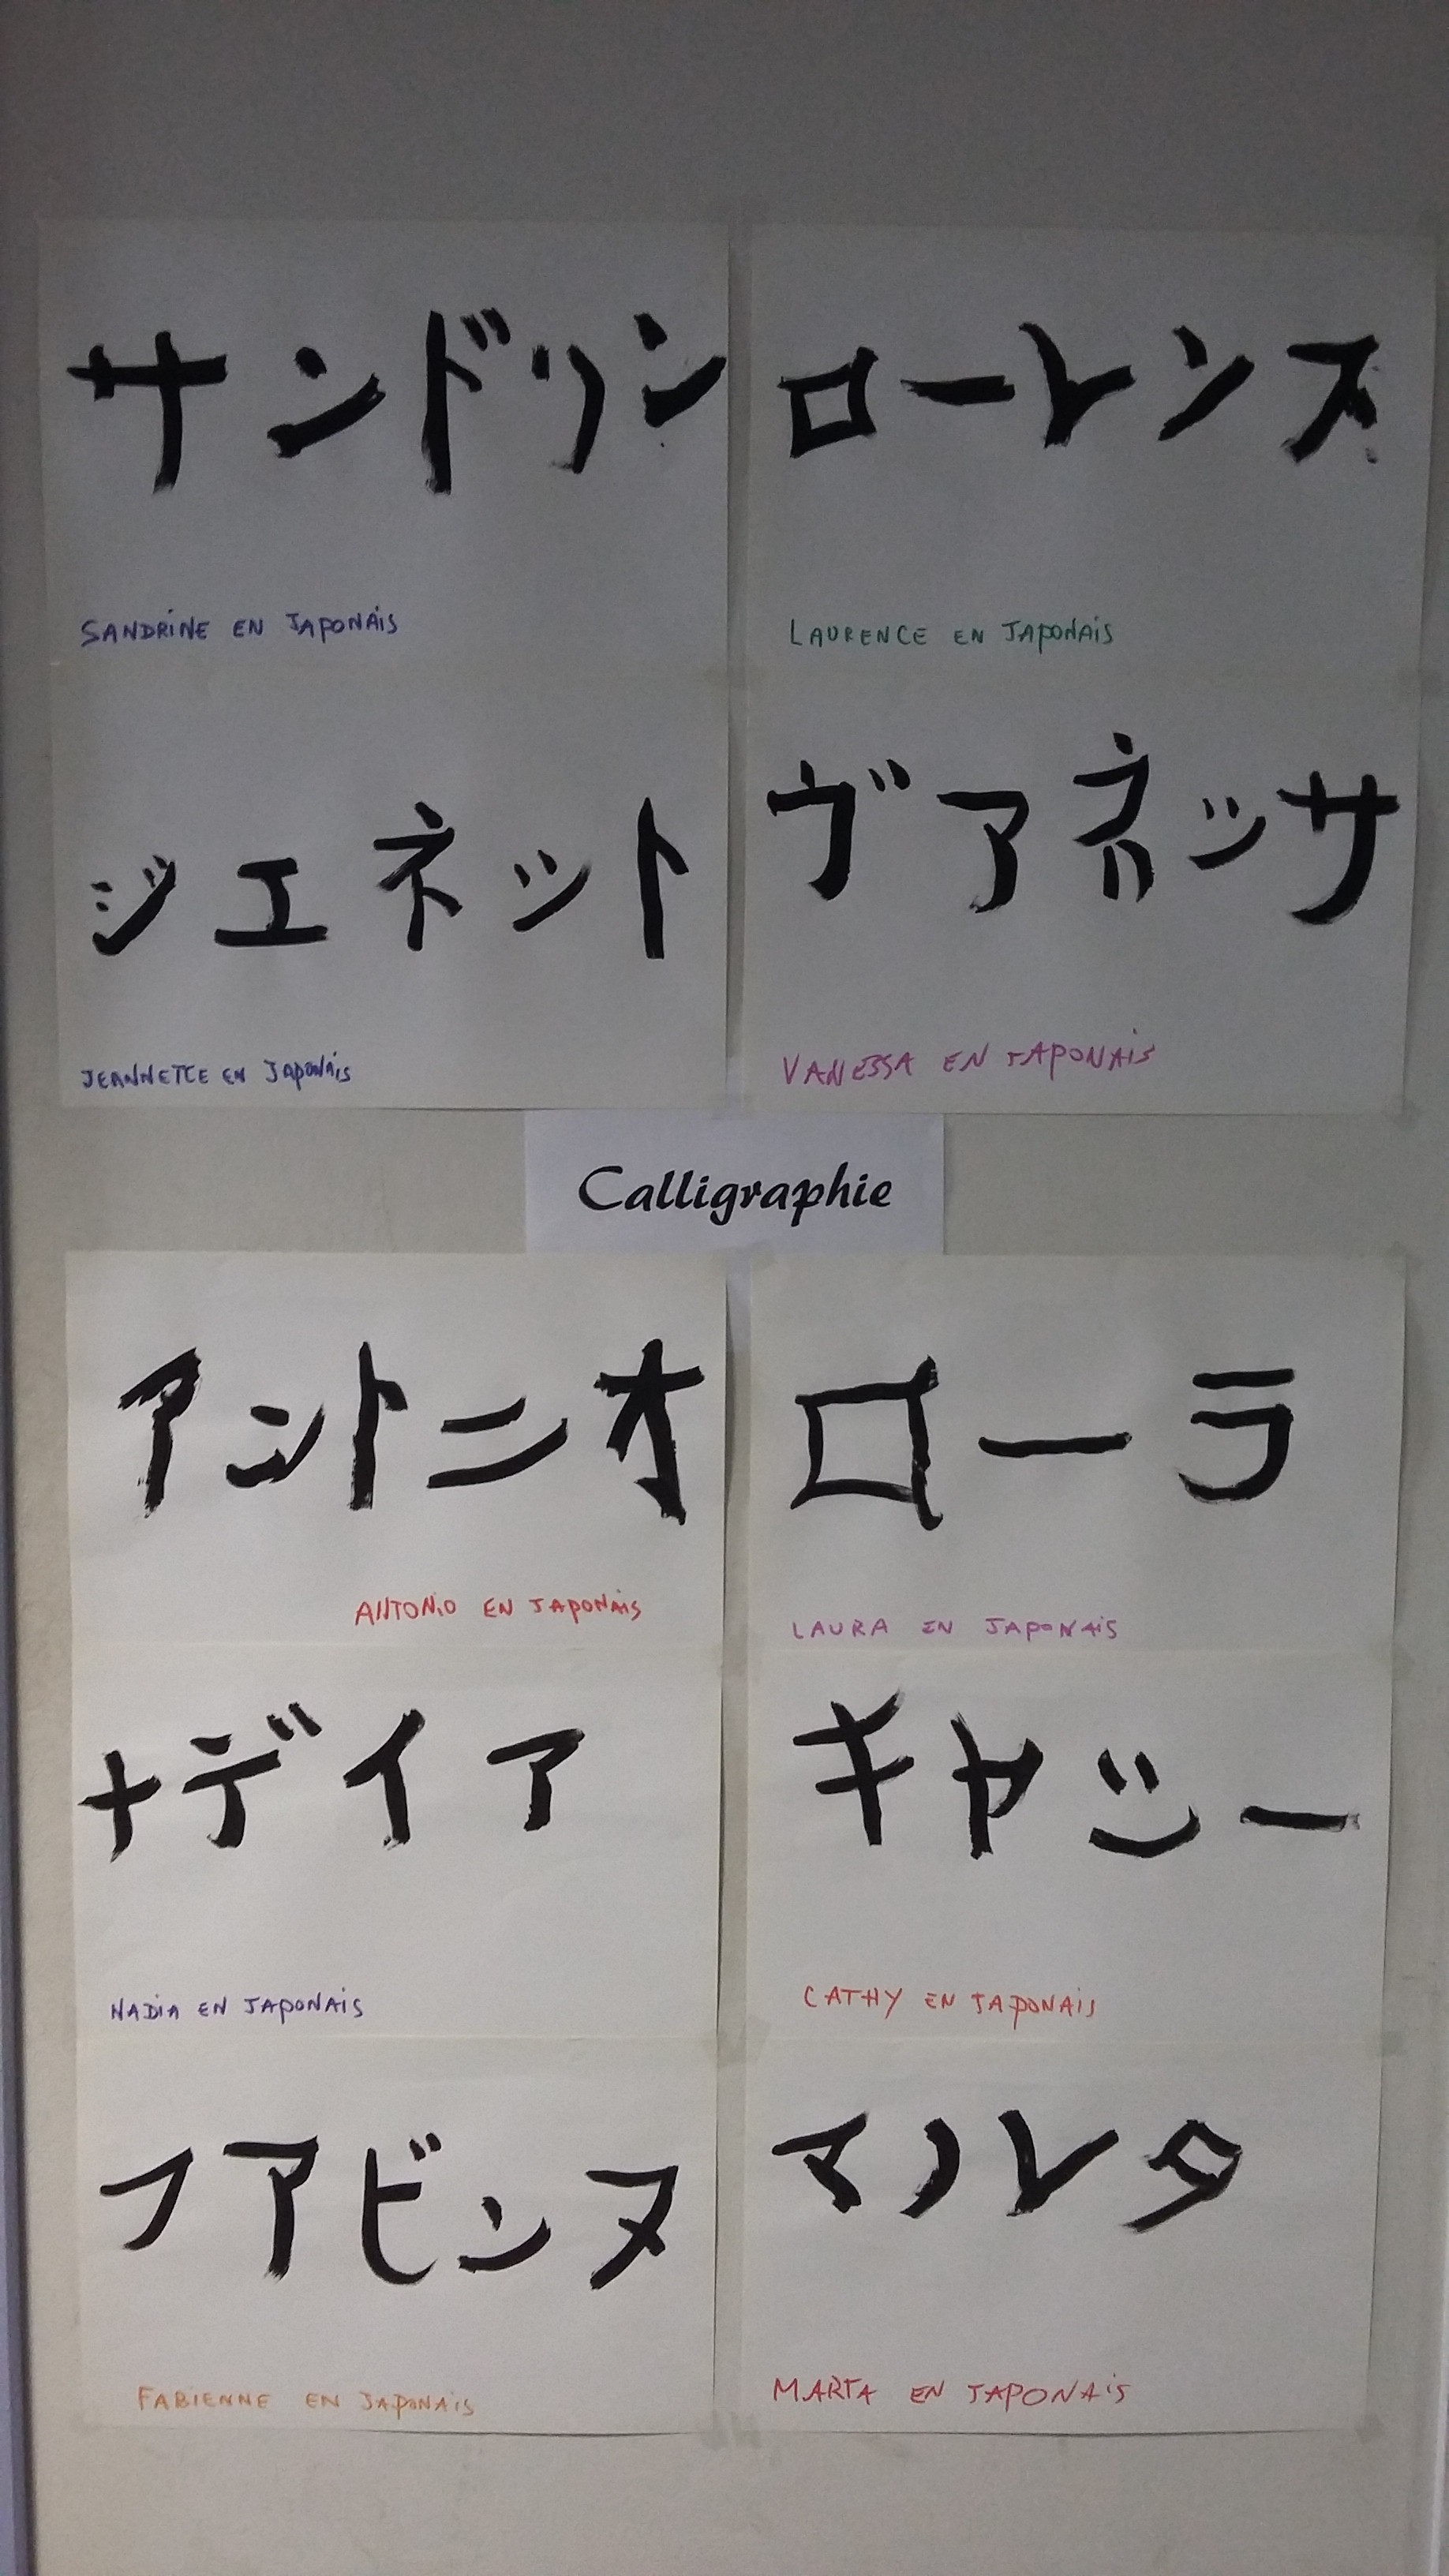 サンドリン
SANDRINE EN JAPONAIS
ローレンス
LAURENCE EN JAPONAIS
ジエネット
JEANNETTE EN JAPONAIS
ヴアネッサ
VANESSA EN JAPONAIS
Calligraphie
アントニオ
ANTONIO EN JAPONAIS
ローラ
LAURA EN JAPONAIS
ナデイア
NADIA EN JAPONAIS
キヤシー
CATHY EN JAPONAIS
フアビンヌ
FABIENNE EN JAPONAIS
マルタ
MARTA EN JAPONAIS